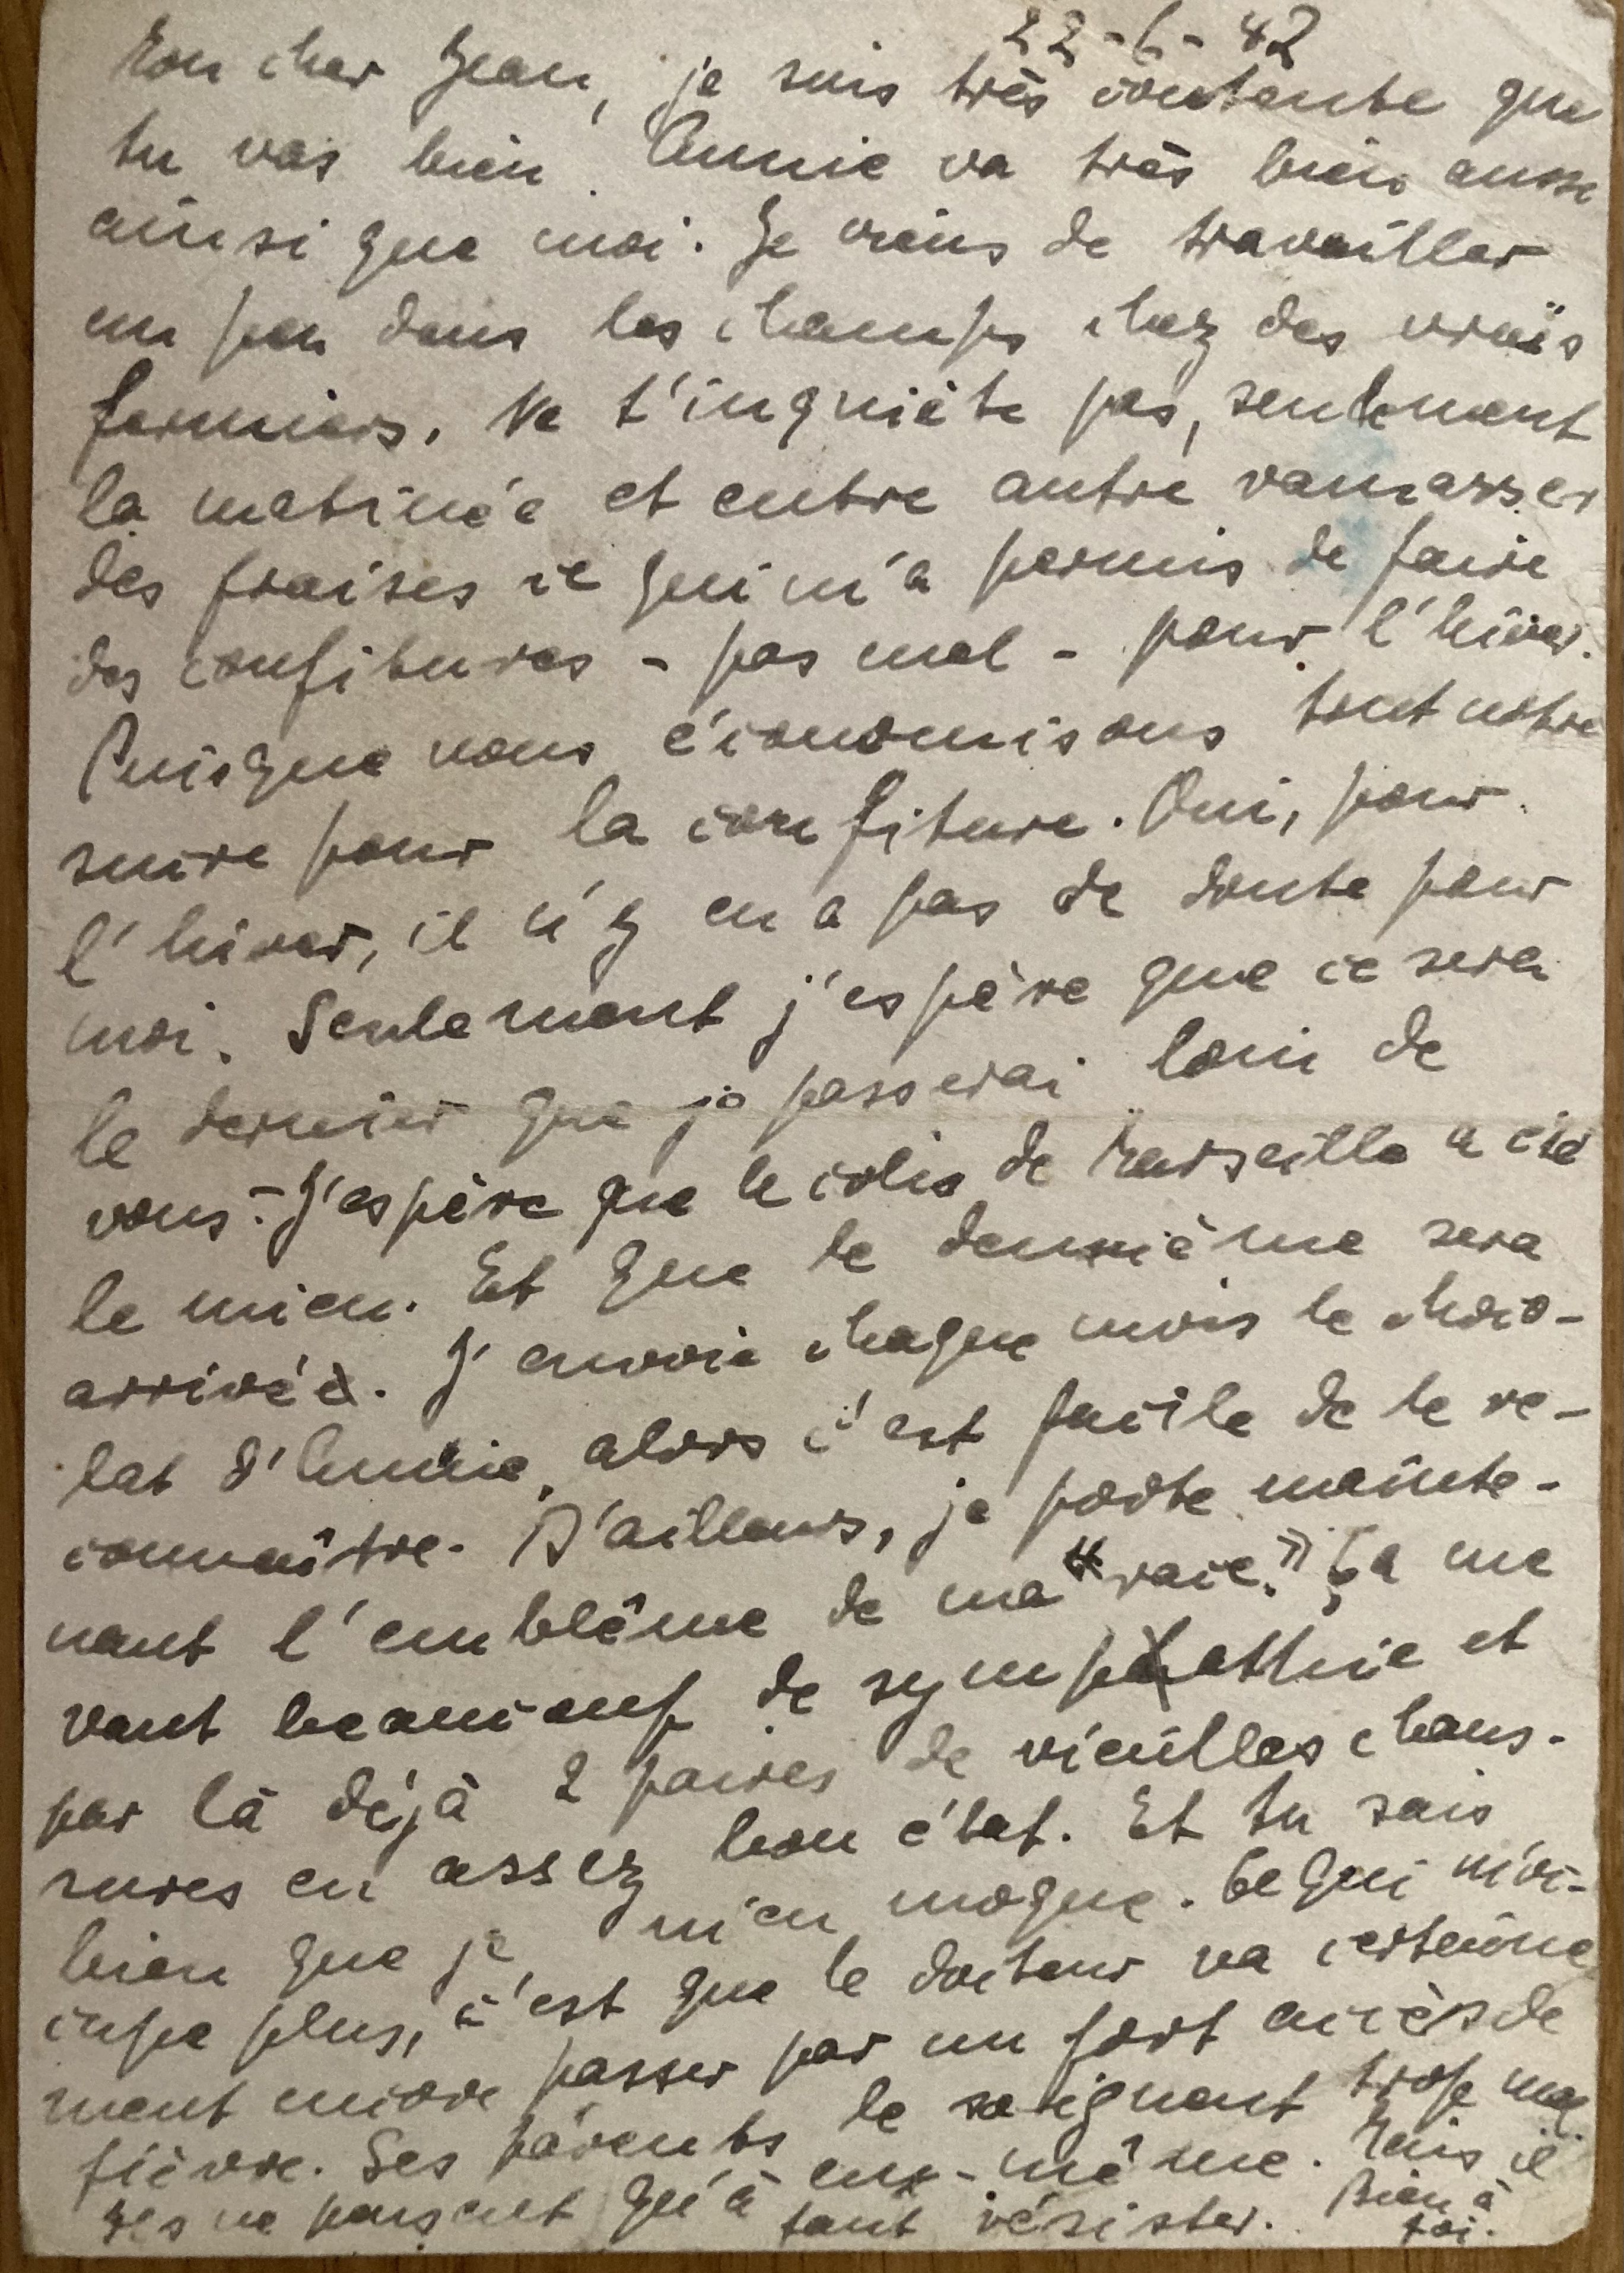 22-6-42
Mon cher Jean, je suis très contente que
tu vas bien. Annie va très bien aussi
ainsi que moi. Je viens de travailler
un peu dans les champs chez des vrais
fermiers. Ne t'inquiète pas, seulement
la matinée et entre autre ramasser
des fraises ce qui m'a permis de faire
des confitures - pas mal - pour l'hiver.
Puisque nous économisons tout notre
sucre pour la confiture. Oui, pour
l'hiver, il n'y en a pas de doute pour
moi. Seulement j'espère que ce sera
le dernier que je passerai loin de
vous. - J'espère que le colis de Marseille a été
le mien. Et que le deuxième sera
arrivé. J'envoie chaque mois le choco-
lat d'Annie, alors c'est facile de le re-
connaître. D'ailleurs, je porte mainte-
nant l'emblême de ma "race." Ça me
vaut beaucoup de sympathie et
par là déjà 2 paires de vieilles chaus-
sures en assez bon état. Et tu sais
bien que je m'en moque. Ce qui m'oc-
cupe plus, c'est que le docteur va certaine
ment encore passer par un fort accès de
fièvre. Ses parents le soignent trop mal.
Ils ne pensent qu'à eux-même. Mais il
faut résister. Bien à
toi.